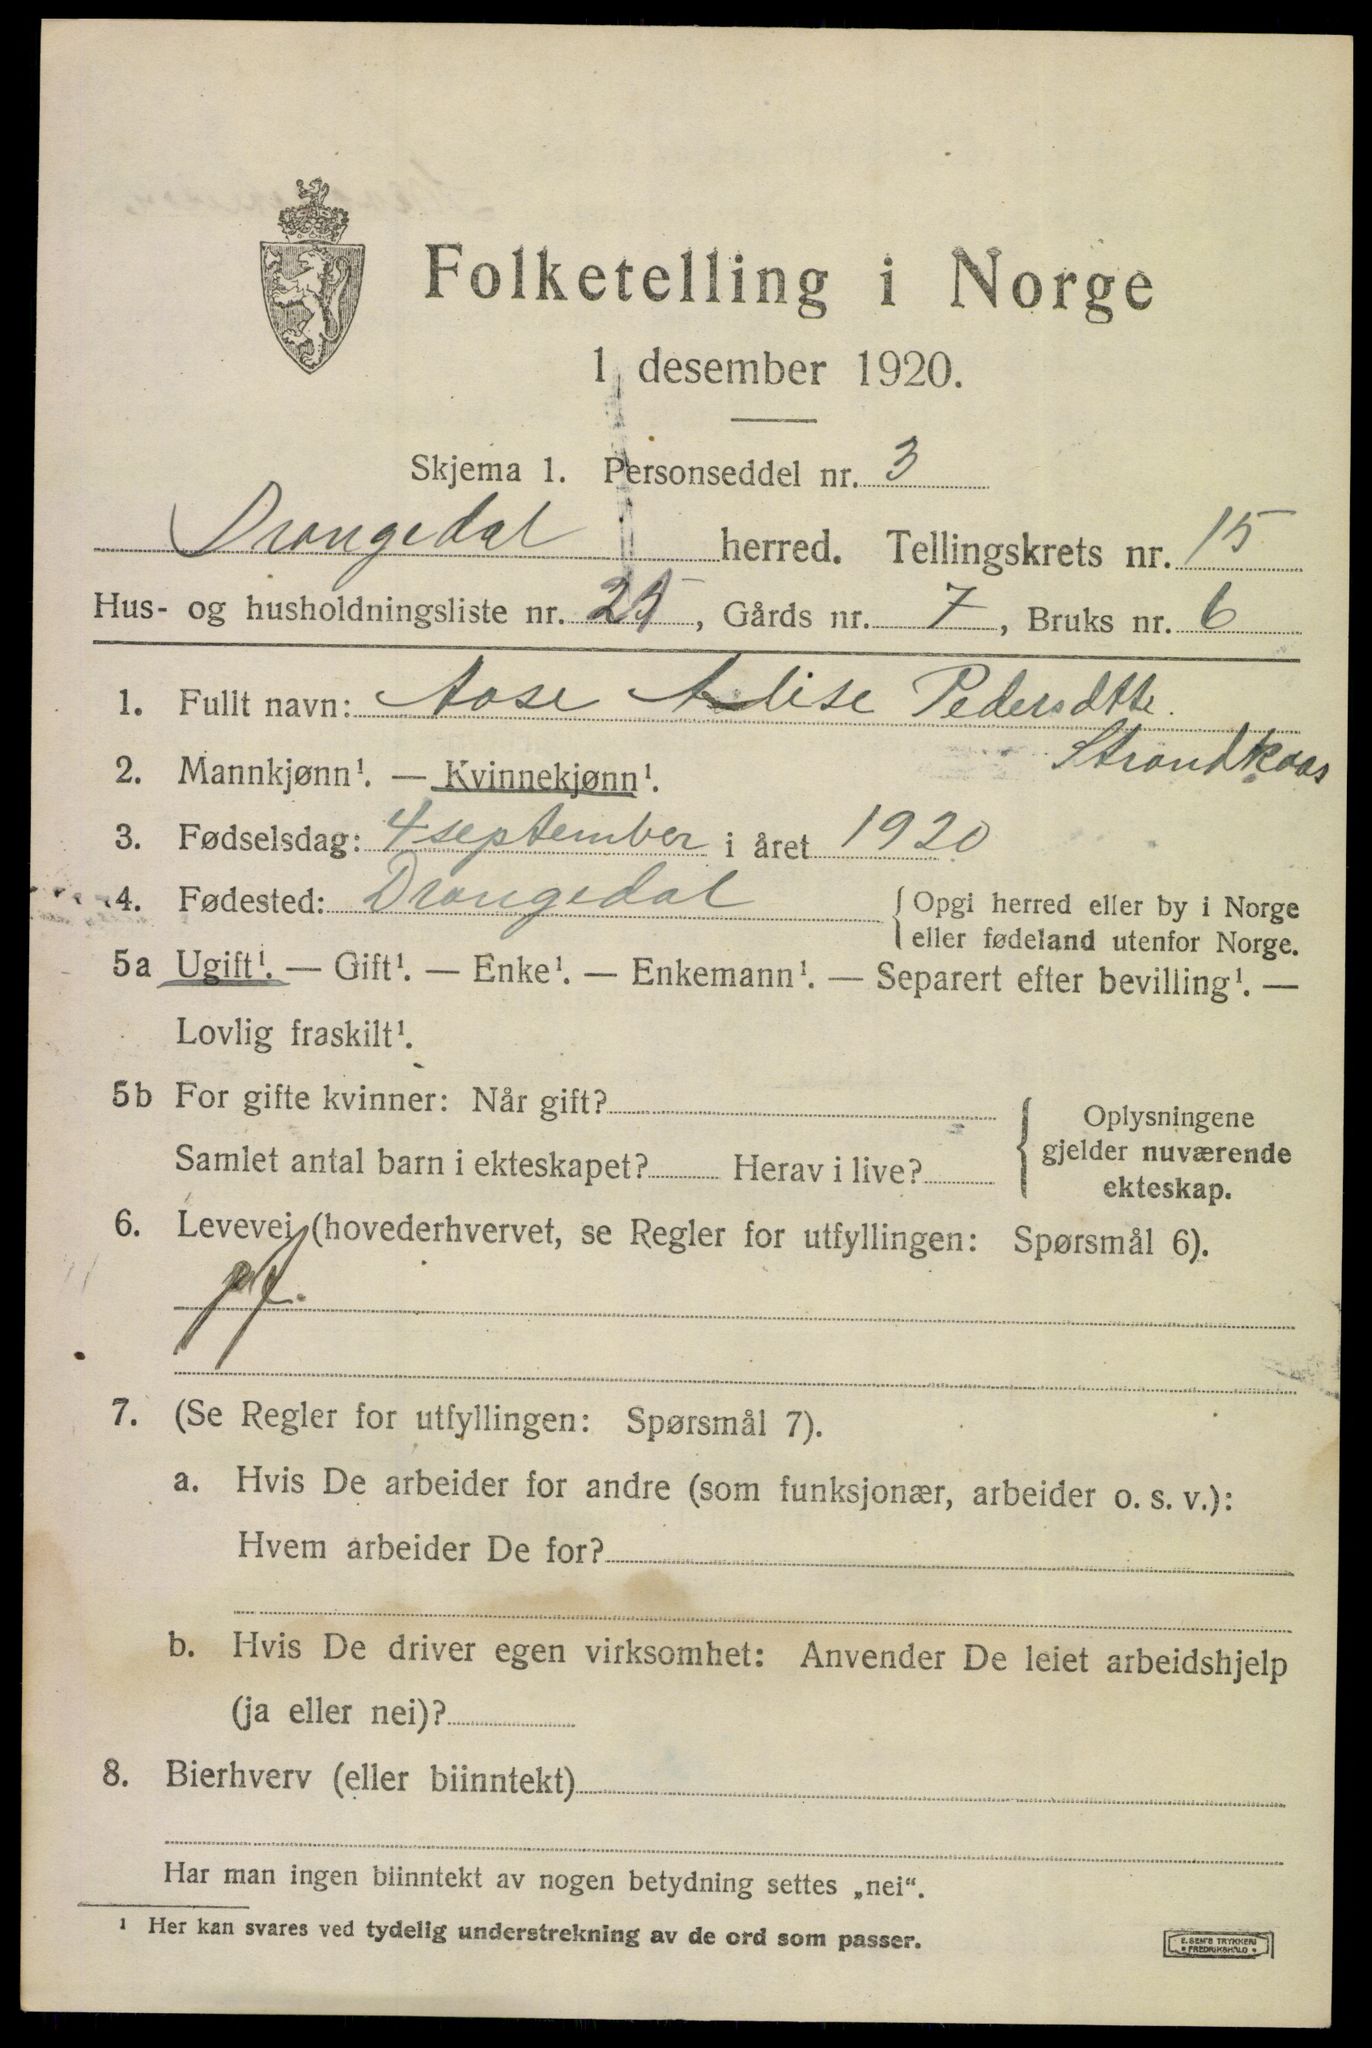 Folketelling i Norge
1 desember 1920.
Skjema 1. Personseddel nr. 3
Drangedal herred. Tellingskrets nr. 15
Hus- og husholdningsliste nr. 25, Gårds nr. 7, Bruks nr. 6
1. Fullt navn: Aase Alise Pedersdtte.
Strandkaas
2. Mannkjønn¹. — Kvinnekjønn¹.
3. Fødselsdag: 4 september i året 1920
4. Fødested: Drangedal { Opgi herred eller by i Norge
eller fødeland utenfor Norge.
5a Ugift¹. — Gift¹. — Enke¹. — Enkemann¹. — Separert efter bevilling¹. —
Lovlig fraskilt¹.
5b For gifte kvinner: Når gift?
Samlet antal barn i ekteskapet? Herav i live?
{ Oplysningene
gjelder nuværende
ekteskap.
6. Levevei (hovederhvervet, se Regler for utfyllingen: Spørsmål 6).
7. (Se Regler for utfyllingen: Spørsmål 7).
a. Hvis De arbeider for andre (som funksjonær, arbeider o. s. v.):
Hvem arbeider De for?
b. Hvis De driver egen virksomhet: Anvender De leiet arbeidshjelp
(ja eller nei)?
8. Bierhverv (eller biinntekt)
Har man ingen biinntekt av nogen betydning settes „nei“.
¹ Her kan svares ved tydelig understrekning av de ord som passer.
E. SEM'S TRYKKERI
FREDRIKSHALD